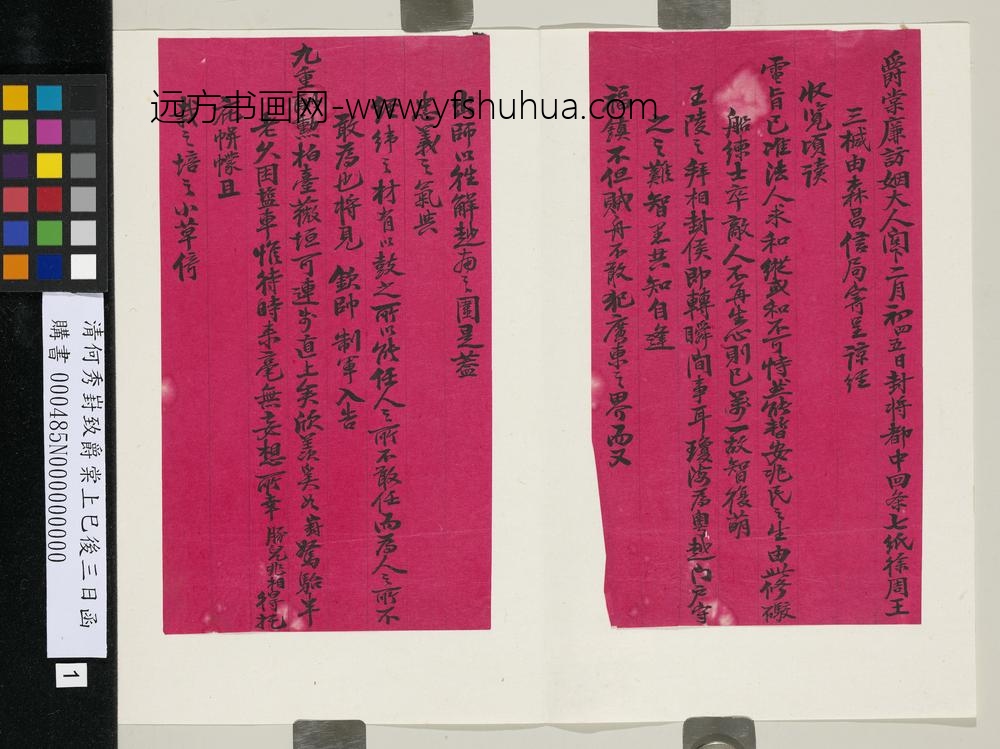 爵棠廉訪姻大人閣下二月初四五日封將都中回条七紙徐周王
三椷由森昌信局寄呈諒經
收覽頃讀
電旨已准法人求和縱或和不可恃並能暫安兆民之生由此修礮
船練士卒敵人不再生心則已萬一故智復萌
王陵之拜相封侯即轉瞬間事耳瓊海為粵越門戶守
之之難智愚共知自逢
福鎮不但賊舟不敢犯廣東之界而又
出師以往解越南之圍是蓋
忠義之氣與
經緯之材有以鼓之所以能任人之所不敢任而為人之所不
敢為也將見 欽帥制軍入告
九重 動柏臺薇垣可連步直上矣欣羨奚似嵵駑駘半
老久困鹽車惟待時來毫無妄想所幸勝兒兆相得托
帡幪且
之培之小草倚
远方书画网-www.yfshuhua.com
清何秀嵵致爵棠上巳後三日函
購書 000485N000000000
1